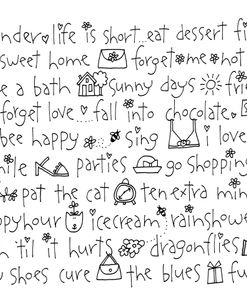 nder life is short..eat dessert fi
sweet home forget me hot
e a bath sunny days fri
forget love fall into chocolate
bee happy sing love
ile parties go shopping
pat the cat ten extra min
ppyhour icecream rainshow
n 'til it hurts dragonflies
u shoes cure the blues fu